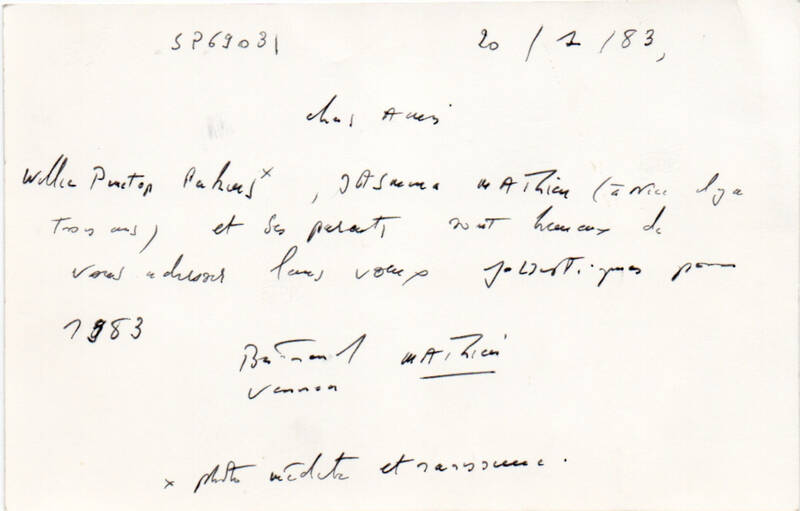 SP69031 20 / 1 / 83,
chers Amis
Willie Pinetop Perkins x, JASmina MAThieu (à Nice il y a
trois ans) et ses parents, sont heureux de
vous adresser leurs voeux jazzistiques pour
1983
Bertrand MAThieu
x photo inédite et rarissime.